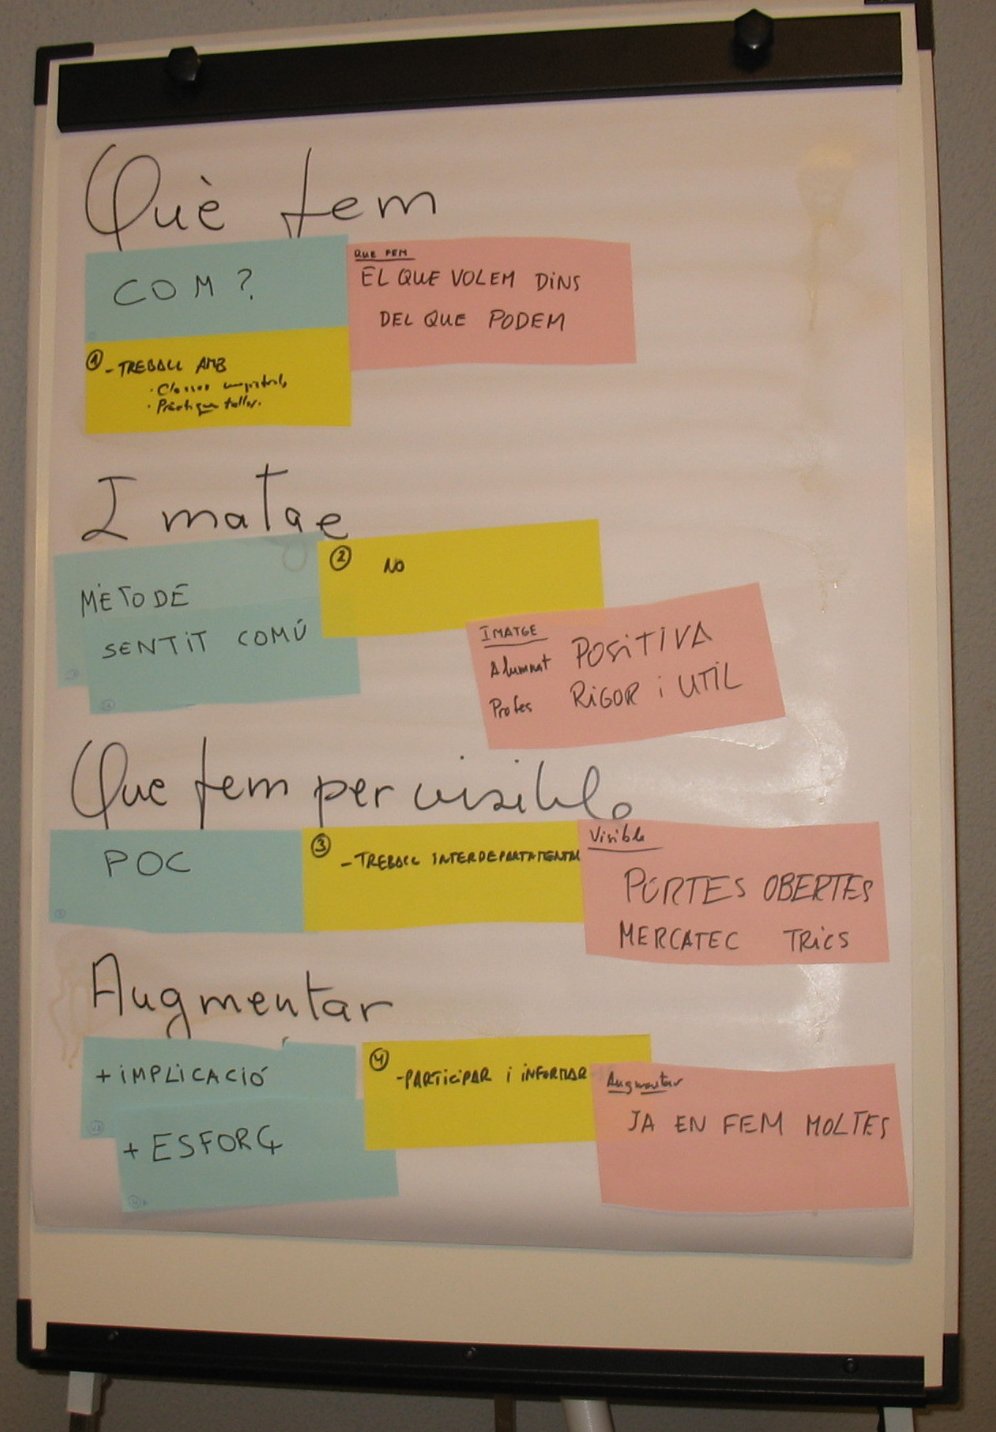 Què fem
COM?
QUE FEM
EL QUE VOLEM DINS
DEL QUE PODEM
1 - TREBALL AMB
· Classes magistrals
· Pràctiques taller.
Imatge
MÈTODE
SENTIT COMÚ
2 NO
IMATGE
Alumnat POSITIVA
Profes RIGOR i UTIL
Que fem per visible
POC
3 - TREBALL INTERDEPARTAMENTAL
Visible
PORTES OBERTES
MERCATEC TRICS
Augmentar
+ IMPLICACIÓ
+ ESFORÇ
4 - PARTICIPAR i INFORMAR
Augmentar
JA EN FEM MOLTES